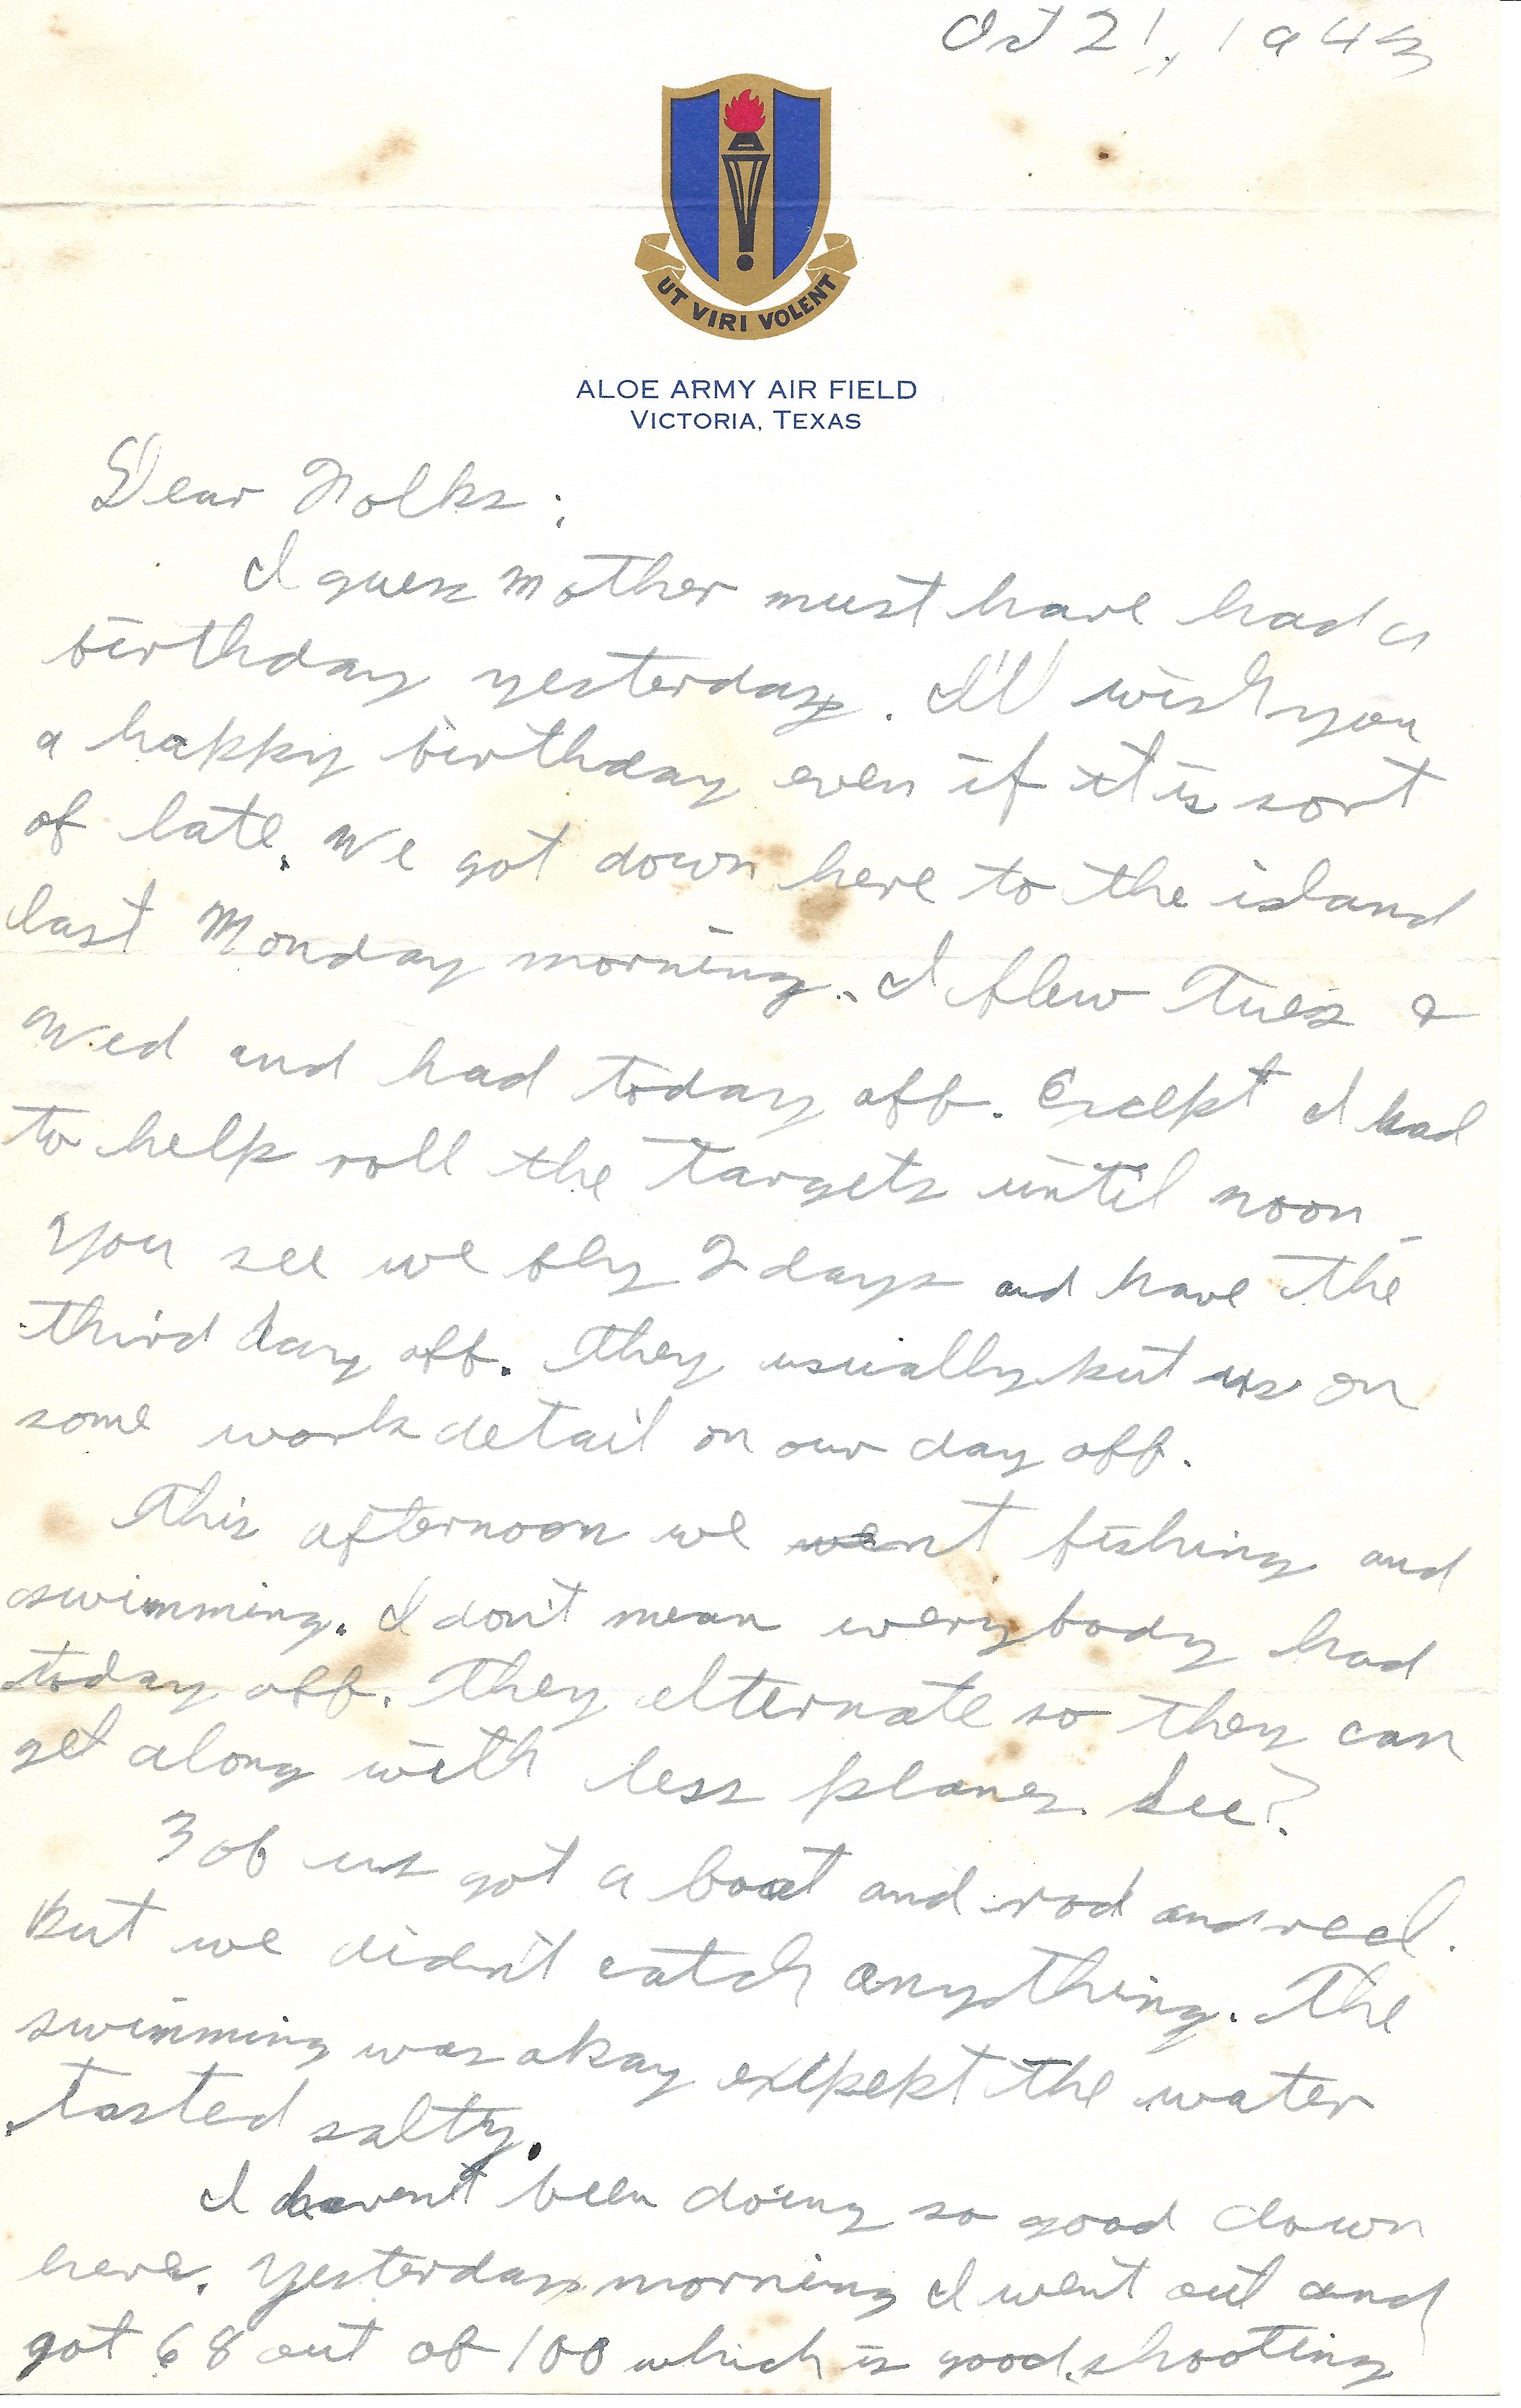 Oct 21, 1943
UT VIRI VOLENT
ALOE ARMY AIR FIELD
VICTORIA, TEXAS
Dear Folks:
I guess Mother must have had a
birthday yesterday. I'll wish you
a happy birthday even if it is sort
of late. We got down here to the island
last Monday morning. I flew Tues &
Wed and had today off. Except I had
to help roll the targets until noon.
You see we fly 2 days and have the
third day off. They usually put us on
some work detail on our day off.
This afternoon we went fishing and
swimming. I don't mean everybody had
today off. They alternate so they can
get along with less planes. See?
3 of us got a boat and rod and reel.
But we didn't catch anything. The
swimming was okay except the water
tasted salty.
I haven't been doing so good down
here. Yesterday morning I went out and
got 68 out of 100 which is good shooting